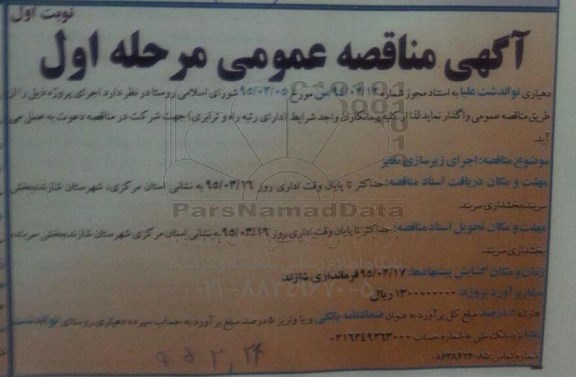 نوبت اول
آگهی مناقصه عمومی مرحله اول
دهیاری نواندشت علیا به استناد مجوز شماره مورخ ۹۵/۰۳/۰۵ شورای اسلامی روستا در نظر دارد اجرای پروژه ذیل را از
طریق مناقصه عمومی واگذار نماید لذا از کلیه پیمانکاران واجد شرایط (دارای رتبه راه و ترابری) جهت شرکت در مناقصه دعوت به عمل می
آید.
موضوع مناقصه: اجرای زیرسازی معابر
مهلت و مکان دریافت اسناد مناقصه: حداکثر تا پایان وقت اداری روز ۹۵/۰۳/۱۶ به نشانی استان مرکزی، شهرستان شازند، بخش
سربند، بخشداری سربند.
مهلت و مکان تحویل اسناد مناقصه: حداکثر تا پایان وقت اداری روز ۹۵/۰۳/۱۶ به نشانی استان مرکزی شهرستان شازند، بخش سربند،
بخشداری سربند.
زمان و مکان گشایش پیشنهادها: ۹۵/۰۳/۱۷ فرمانداری شازند.
مبلغ برآورد پروژه: ۱۳۰۰۰۰۰۰۰۰ ریال
۵ درصد مبلغ کل برآورد به عنوان ضمانتنامه بانکی و یا واریز ۵ درصد مبلغ برآورد به حساب سپرده دهیاری روستای نواندشت
علیا نزد بانک ملی به شماره حساب ۰۲۱۶۳۴۹۲۶۳۰۰۰
شماره تماس: ۰۸۶۳۸۴۲۴۰۸۵
ParsNamadData
۰۲۱-۸۸۳۴۹۶۷۰-۵